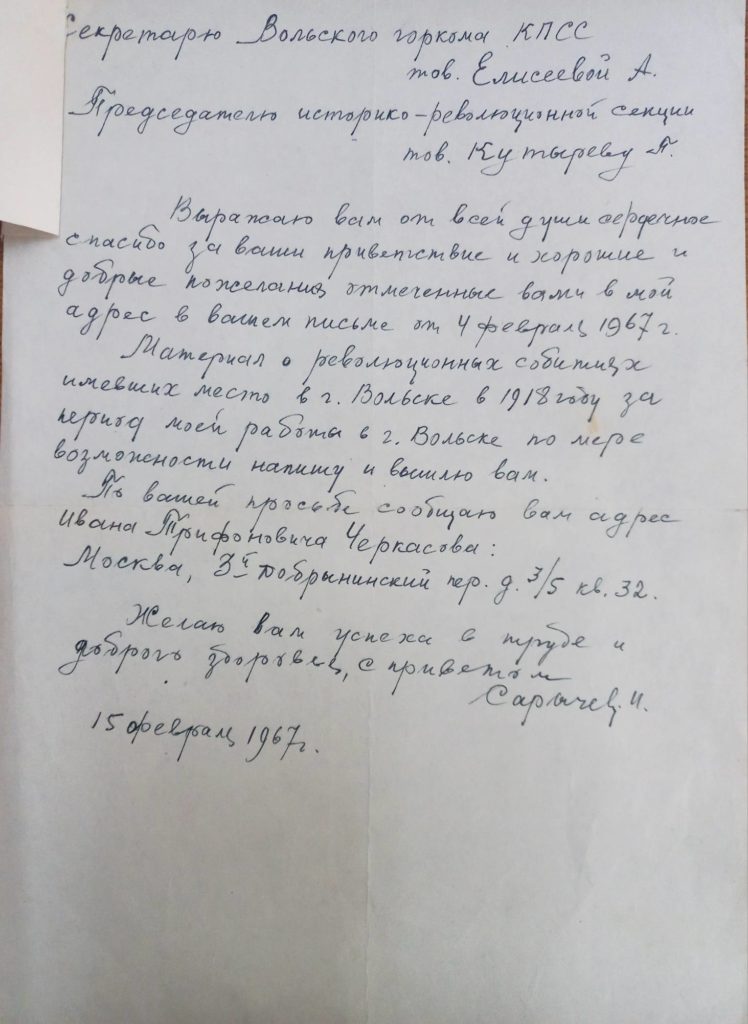 Секретарю Вольского горкома КПСС
тов. Елисеевой А.
Председателю историко-революционной секции
тов. Кутыреву П.
Выражаю вам от всей души сердечное
спасибо за ваши приветствие и хорошие и
добрые пожелания отмеченные вами в мой
адрес в вашем письме от 4 февраля 1967 г.
Материал о революционных событиях
имевших место в г. Вольске в 1918 году за
период моей работы в г. Вольске по мере
возможности напишу и вышлю вам.
По вашей просьбе сообщаю вам адрес
Ивана Трифоновича Черкасова:
Москва, 3й Добрынинский пер. д. 3/5 кв. 32.
Желаю вам успеха в труде и
доброго здоровья, с приветом
Сарычев. И.
15 февраля 1967 г.